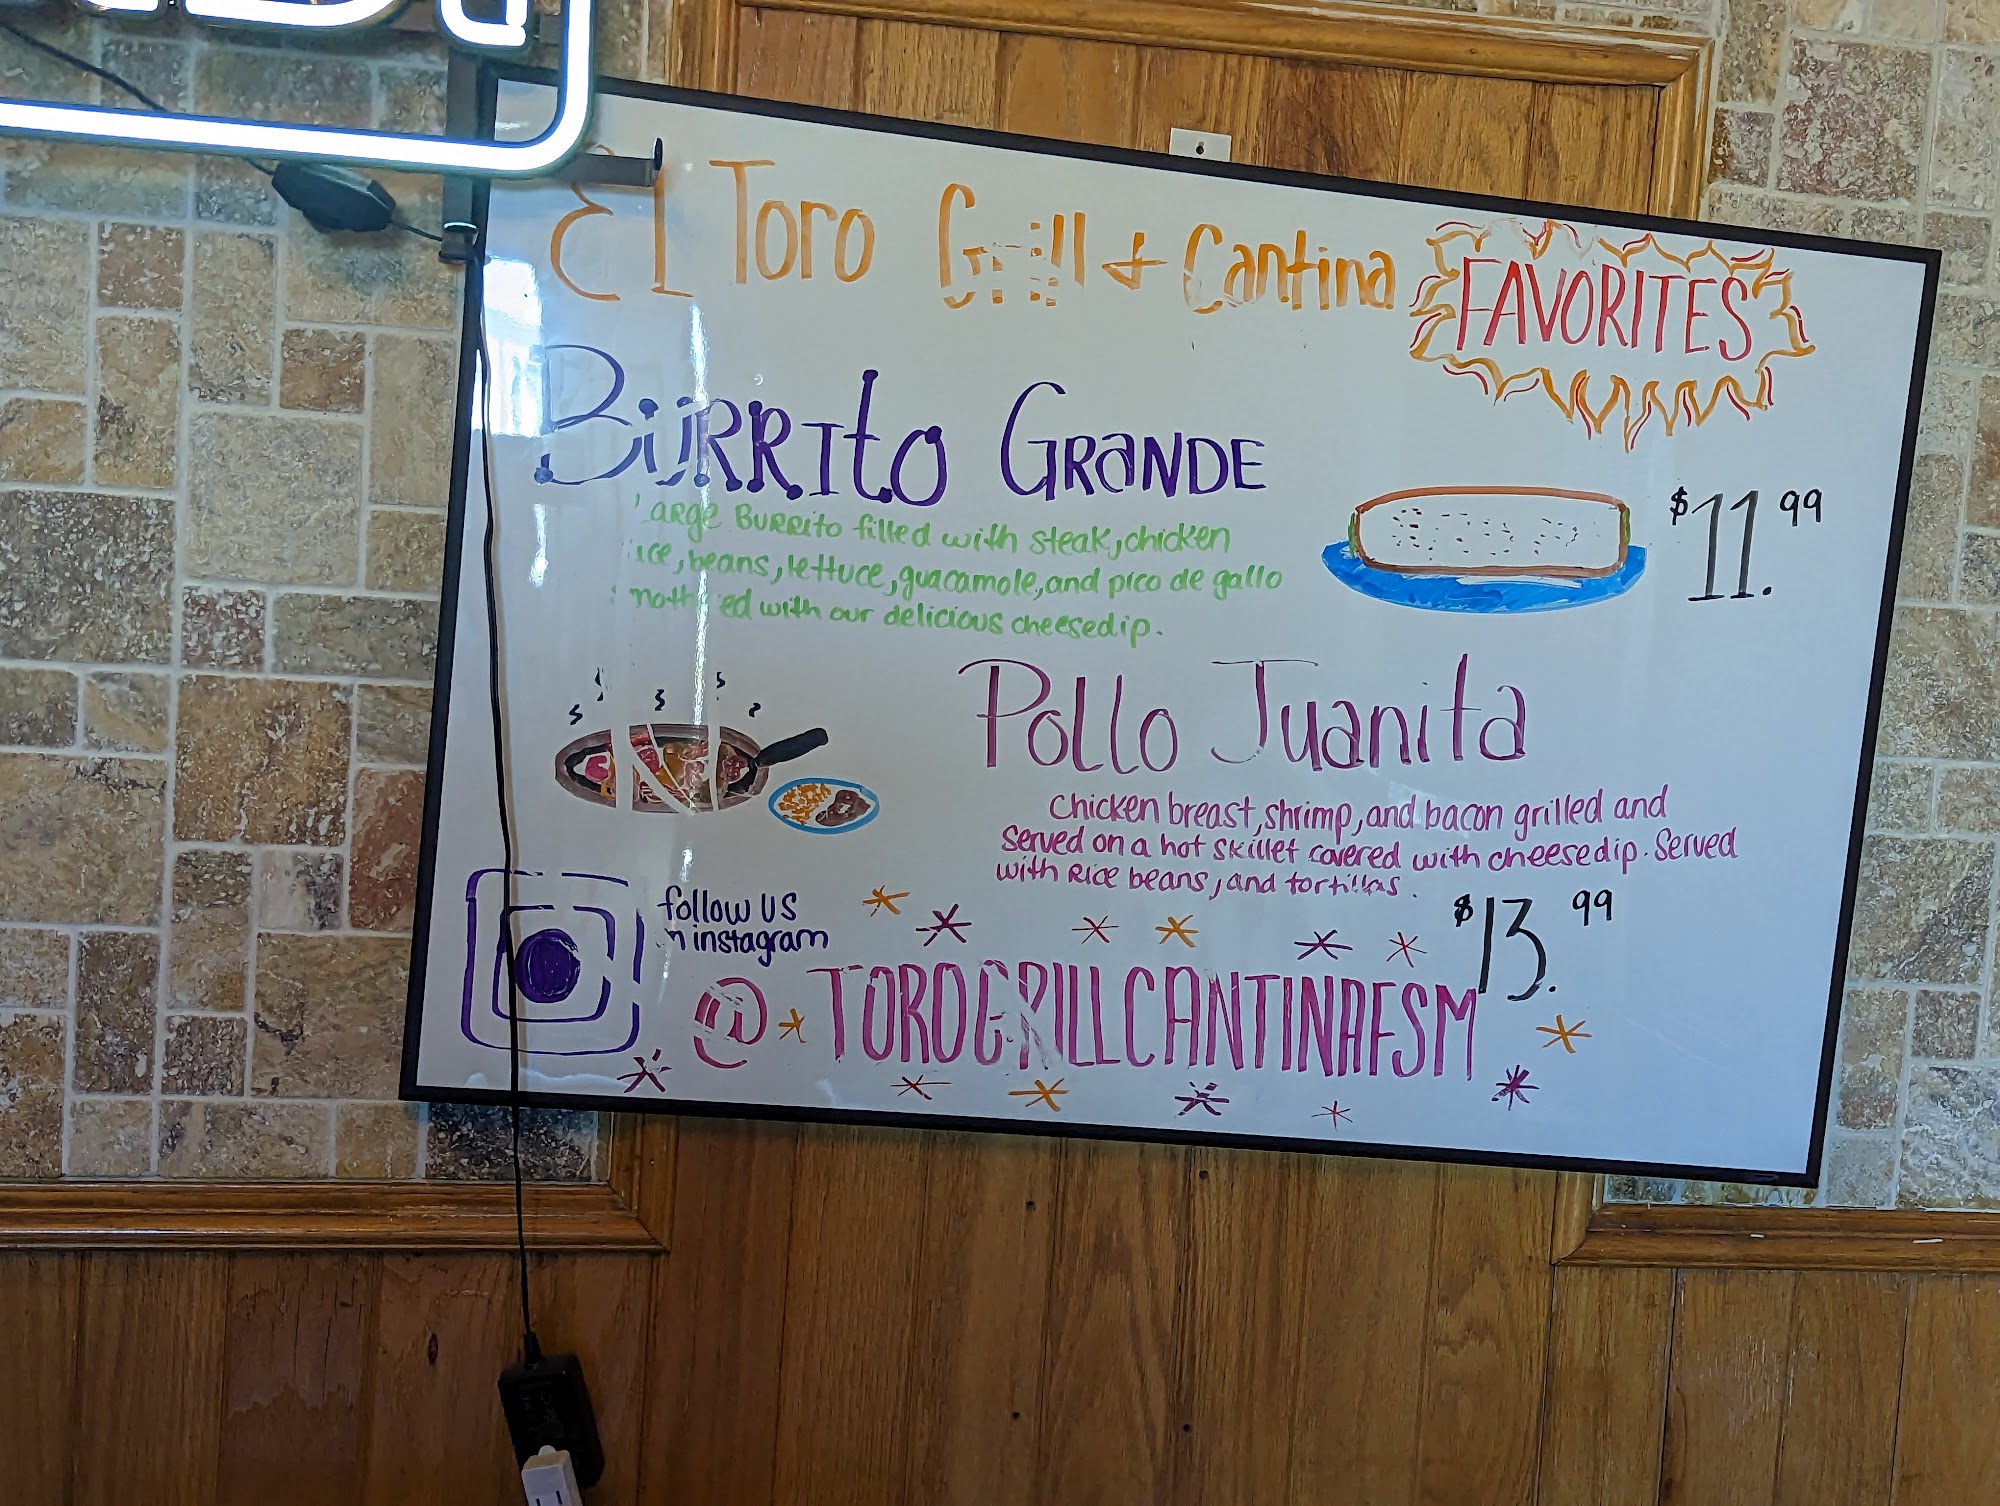 El Toro Grill & Cantina
FAVORITES
BURRITO GRANDE
Large BURRITO filled with steak, chicken
rice, beans, lettuce, guacamole, and pico de gallo
smothered with our delicious cheesedip.
$11.99
Pollo Juanita
Chicken breast, shrimp, and bacon grilled and
Served on a hot skillet covered with cheesedip. Served
with Rice beans, and tortillas.
$13.99
follow us
on instagram
@TOROGRILLCANTINAFSM